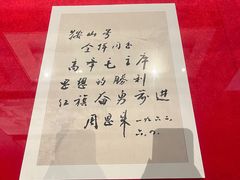 鞍山号
全体同志
高举毛主席
思想的勝利
红旗奋勇前进
周恩来 一九六二.
六.九.